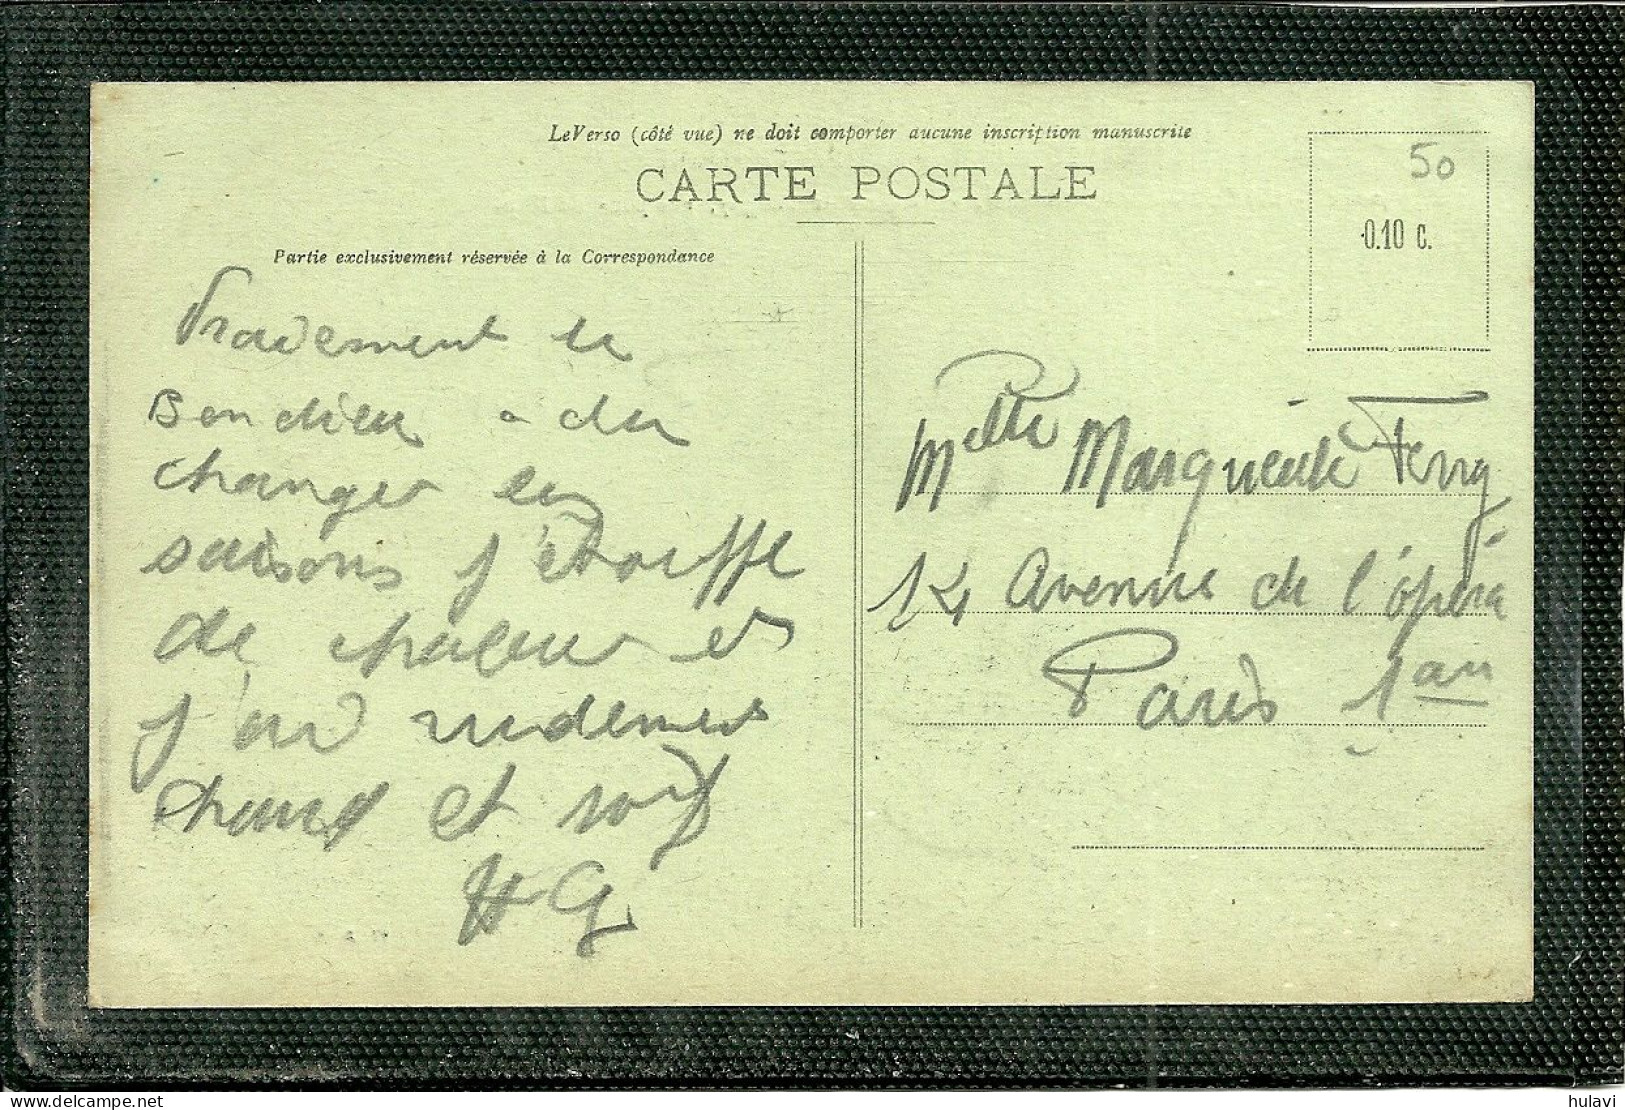 Le Verso (côté vue) ne doit comporter aucune inscription manuscrite
CARTE POSTALE
50
0.10 c.
Partie exclusivement réservée à la Correspondance
Vraiement le
Bon dieu a du
changer les
saisons j'étouffe
de chaleur et
j'ai rudement
chaud et soif
HG
Melle Marguerite Ferry
14 Avenue de l'opéra
Paris 1
hulavi